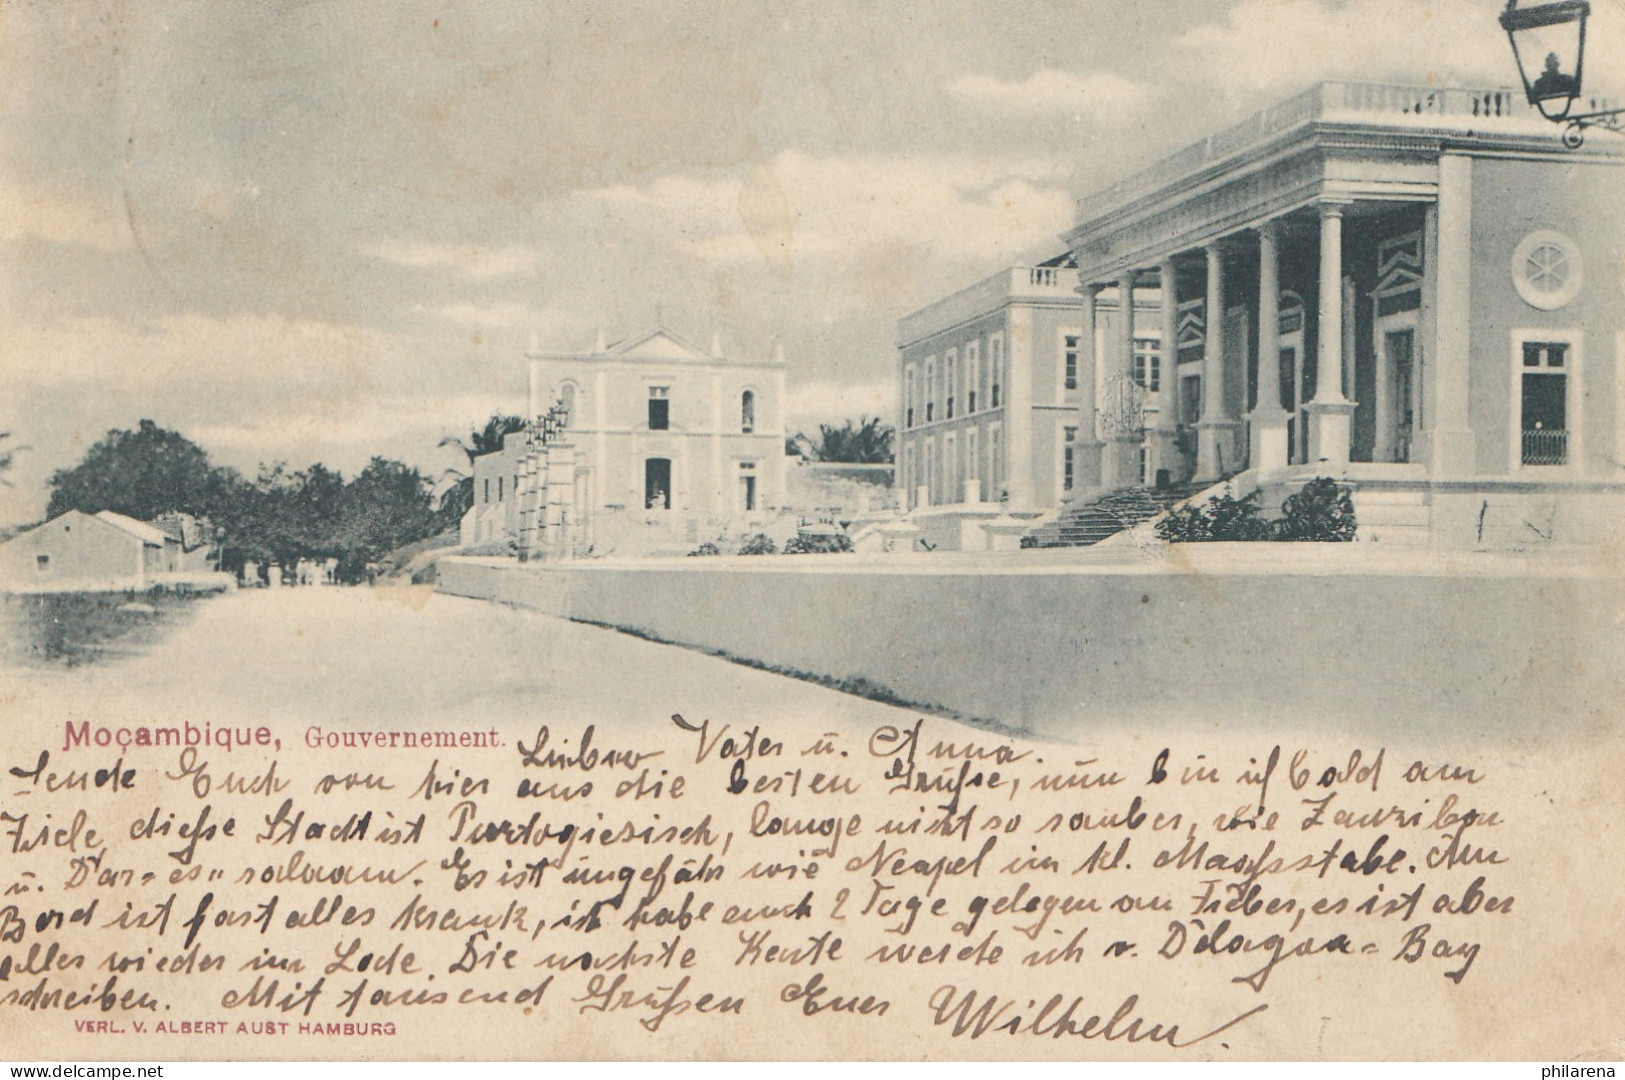 Moçambique, Gouvernement.
Lieber Vater u. Anna.
Sende Euch von hier aus die besten Grüße, nun bin ich bald am
Ziele, dieße Stadt ist Purtogiesisch, lange nicht so sauber, wie Zanzibar
u. Dar-es-salaam. Es ist ungefähr wie Neapel im kl. Maaßstabe. Am
Bord ist fast alles krank, ich habe auch 2 Tage gelegen am Fieber, es ist aber
alles wieder im Lode. Die nächste Karte werde ich v. Delagoa-Bay
schreiben. Mit tausend Grüßen Euer Wilhelm.
VERL. V. ALBERT AUST HAMBURG
delcampe.net
philarena